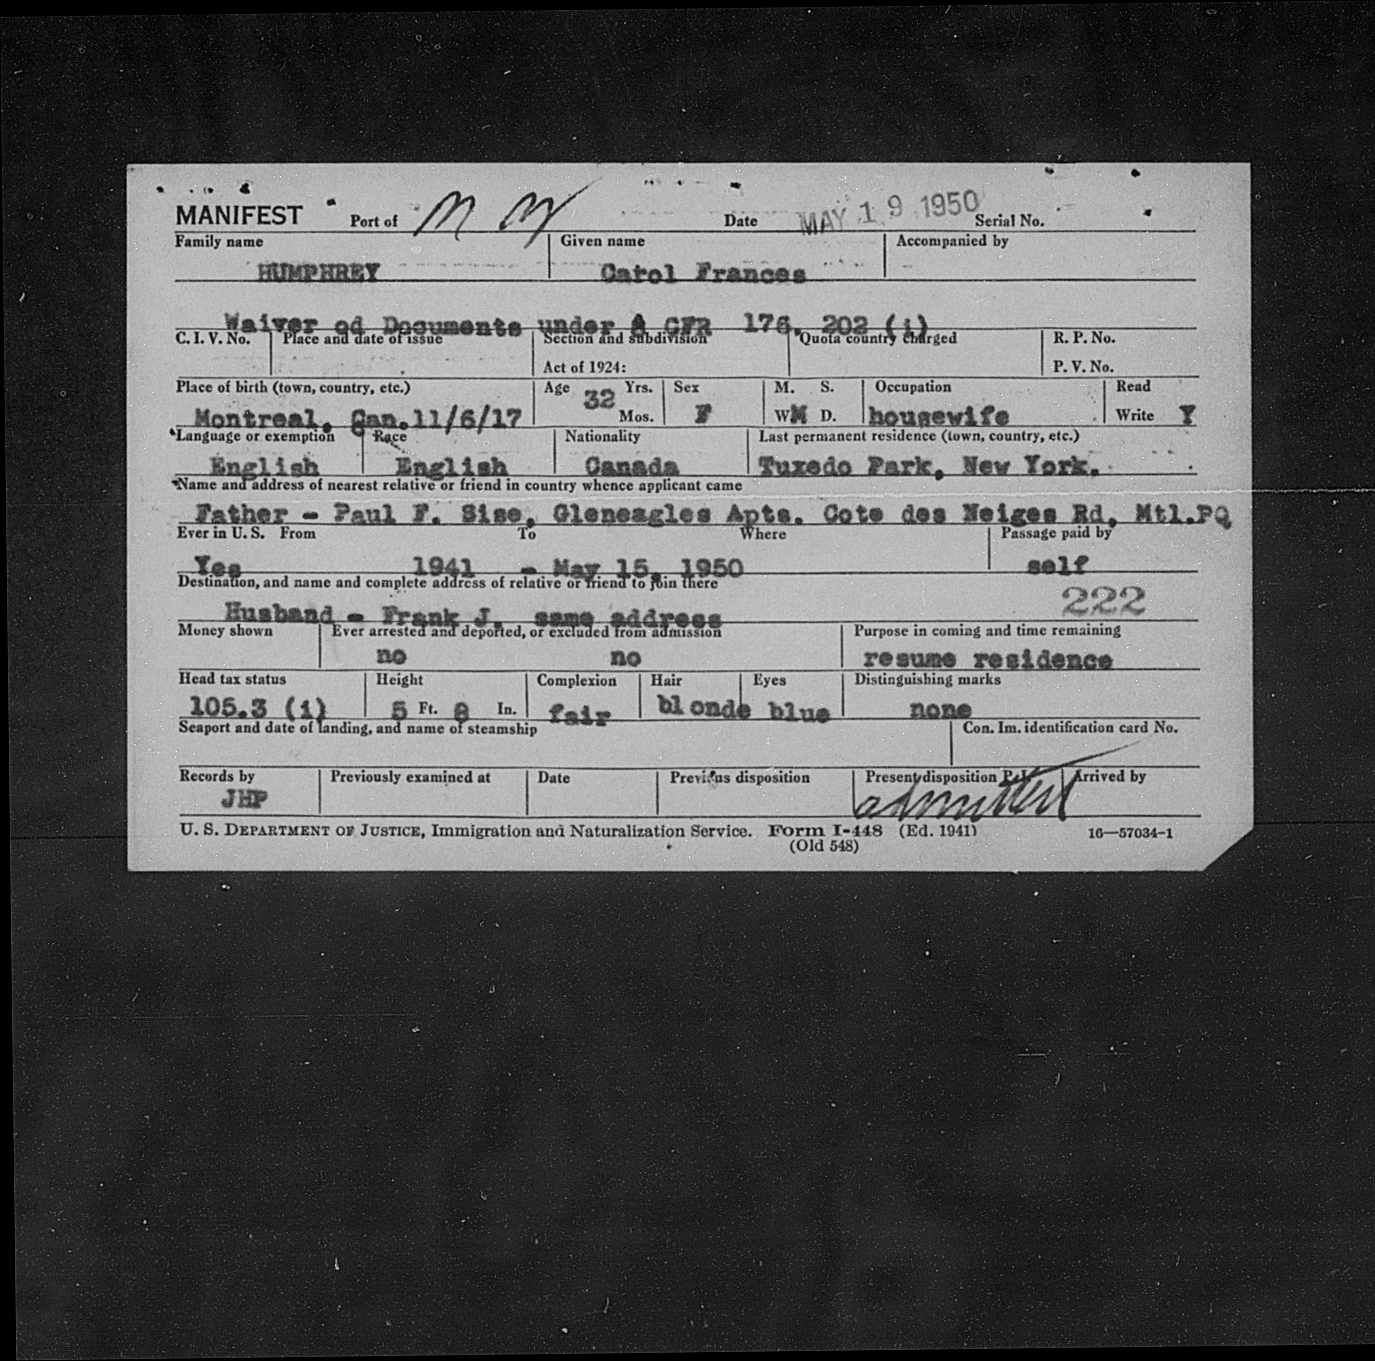 MANIFEST Port of Date MAY 19 1950 Serial No.
Family name Given name Accompanied by
HUMPHREY Carol Frances
Waiver od Documents under 8 CFR 176. 202 (i)
C. I. V. No. Place and date of issue Section and subdivision Quota country charged R. P. No.
Act of 1924: P. V. No.
Place of birth (town, country, etc.) Age 32 Yrs. Sex M. S. Occupation Read
Montreal, Can.11/6/17 Mos. F WM D. housewife Write Y
Language or exemption Race Nationality Last permanent residence (town, country, etc.)
English English Canada Tuxedo Park, New York.
Name and address of nearest relative or friend in country whence applicant came
Father - Paul F. Sise, Gleneagles Apts. Cote des Neiges Rd, Mtl.PQ
Ever in U. S. From To Where Passage paid by
Yes 1941 - May 15, 1950 self
Destination, and name and complete address of relative or friend to join there
Husband - Frank J. same address 222
Money shown Ever arrested and deported, or excluded from admission Purpose in coming and time remaining
no no resume residence
Head tax status Height Complexion Hair Eyes Distinguishing marks
105.3 (i) 5 Ft. 8 In. fair blonde blue none
Seaport and date of landing, and name of steamship Con. Im. identification card No.
Records by Previously examined at Date Previous disposition Present disposition Arrived by
JHP admitted
U. S. DEPARTMENT OF JUSTICE, Immigration and Naturalization Service. Form I-448 (Ed. 1941) 16—57034-1
(Old 548)